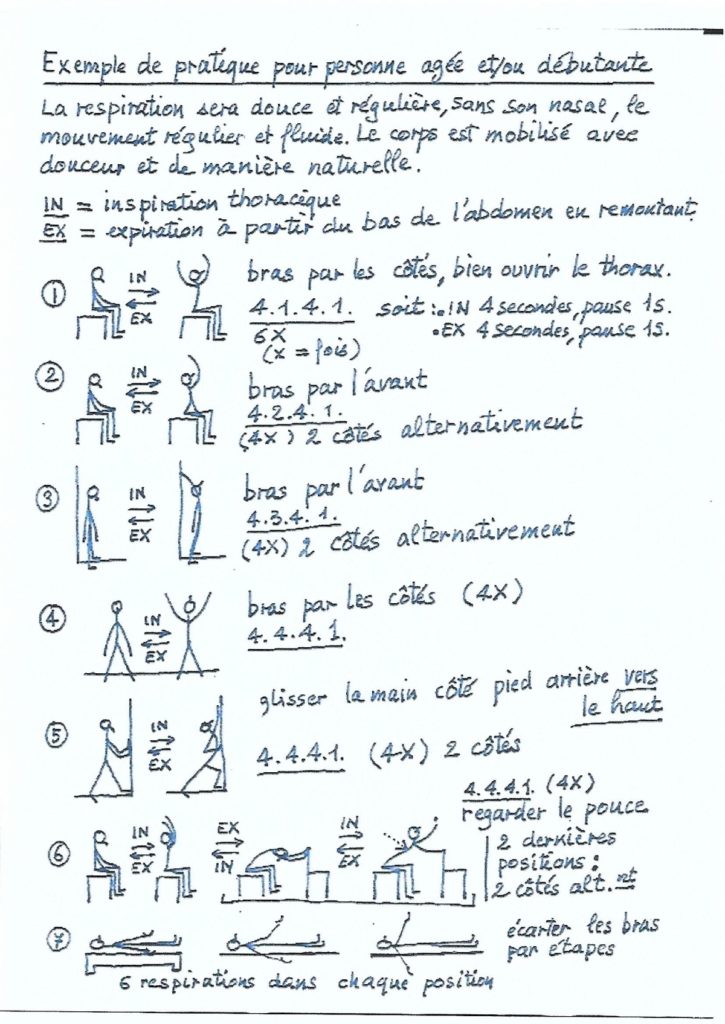 Exemple de pratique pour personne agée et/ou débutante
La respiration sera douce et régulière, sans son nasal, le
mouvement régulier et fluide. Le corps est mobilisé avec
douceur et de manière naturelle.
IN = inspiration thoracique
EX = expiration à partir du bas de l'abdomen en remontant
1 IN EX bras par les côtés, bien ouvrir le thorax.
4.1.4.1. soit : • IN 4 secondes, pause 1s.
6X • EX 4 secondes, pause 1s.
(x = fois)
2 IN EX bras par l'avant
4.2.4.1.
(4X) 2 côtés alternativement
3 IN EX bras par l'avant
4.3.4.1.
(4X) 2 côtés alternativement
4 IN EX bras par les côtés (4X)
4.4.4.1.
glisser la main côté pied arrière vers
le haut
5 IN EX 4.4.4.1. (4X) 2 côtés
4.4.4.1. (4X)
regarder le pouce
6 IN EX EX IN IN EX 2 dernières
positions :
2 côtés alt.nt
7 écarter les bras
par étapes
6 respirations dans chaque position